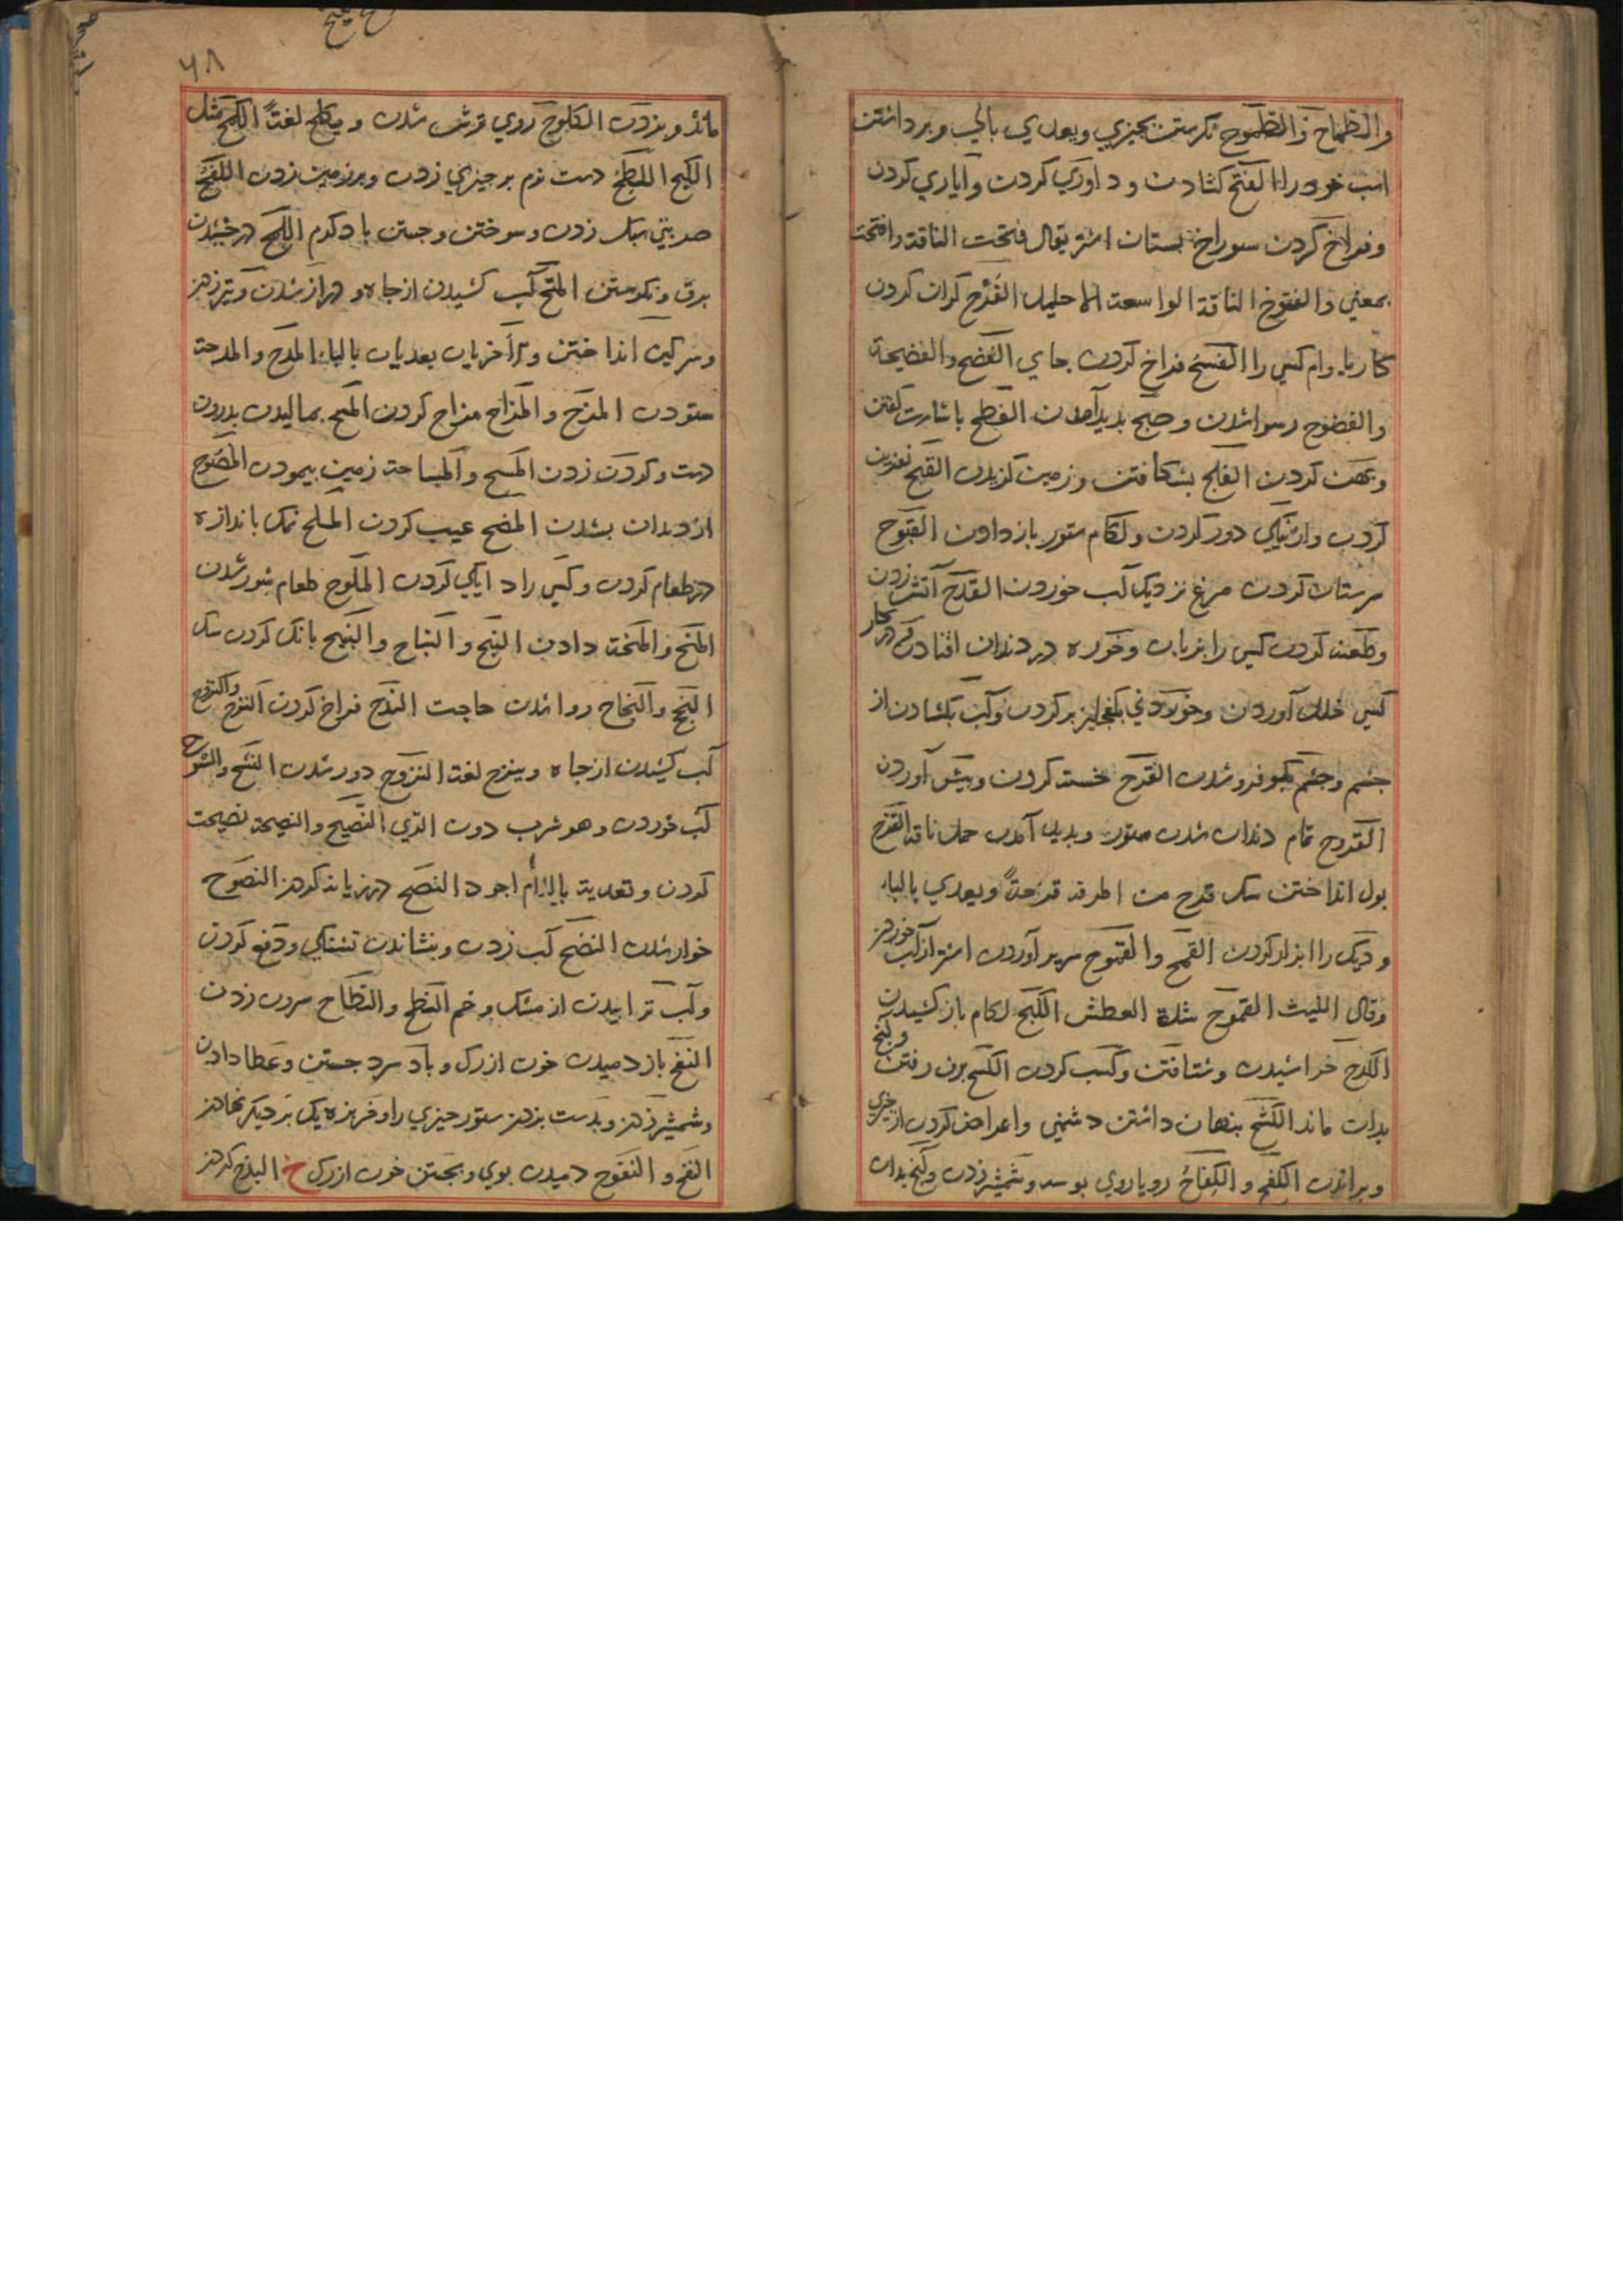 والطماح والطموح نکرستن بچیزی ویعدی بالی وبرداشتن
اسب خود را الفتح کشادن و داوری کردن و آیاری کردن
وفراخ کردن سوراخ بستان اشتر یقال فتحت الناقة وافتحت
بمعنی والفتوح الناقة الواسعة الاحلیل الفدح کران کردن
کار یا وام کسی را الفسح فراخ کردن جای الفضح والفضیحة
والفضوح رسوا شدن و صبح بدید آمدن الفطح باشارت کفتن
وبهن کردن الفلح بشکافتن و زمین کزیدن القبح نفرین
کردن واز نیکی دور کردن ولکام ستور باز دادن القبوح
مرستان کردن مرغ نزدیک آب خوردن القدح آتش زدن
وطعنه کردن کسی را بزبان وخوره در دندان افتادن ودر کار
کسی خلل آوردن وخوردنی بکفجلیز بر کردن وآب بکشادن از
چشم وچشم بکو فرو شدن القرح خسته کردن وبیش آوردن
القروح تمام دندان شدن ستور وبدید آمدن حمل ناقه القزح
بول انداختن سک قدح من المرقة قدحةً ویعدی بالباء
ودیک را ابزار کردن القمح والقموح سر بر آوردن اشتر از آب خوردن
وقال اللیث القموح شدة العطش الکبح لکام باز کشیدن
الکدح خراشیدن وشتافتن وکسب کردن الکسح برن رفتن وکنح
بدان ماند الکشح بنهان داشتن دشمنی واعراض کردن از چیزی
وبراندن الکفح والکفاح رویاروی بوسه وشمشیر زدن وکنح بدان
۶۸
ماند وبزدن الکلوح روی ترش شدن ویکلح لغةً الکمح مثل
الکبح اللطح دست نرم بر چیزی زدن وبر زمین زدن اللفح
ضربتی سبک زدن وسوختن وجستن باد کرم اللمح درخشیدن
برق ونکرستن المتح آب کشیدن از چاه ودراز شدن وتیز دادن
وسرکین انداختن والآخران یعدیان بالباء المدح والمدحة
ستودن المزح والمزاح مزاح کردن المسح بمالیدن بدرون
دست وکردن زدن المسح والمساحة زمین بیمودن المصوح
از دندان بشدن المضح عیب کردن الملح نمک باندازه
در طعام کردن وکسی را دایکی کردن الملوح طعام شور شدن
المنح والمنحة دادن النبح والنباح والنبیح بانک کردن سک
النجح والنجاح روا شدن حاجت الندح فراخ کردن النزح والنزوح
آب کشیدن از چاه وینزح لغة النزوح دور شدن النشح والنشوح
آب خوردن وهو شرب دون الری النصیح والنصیحة نصیحت
کردن وتعدیته باللام اجود النصح درزیانه کردن النصوح
خوار شدن النضح آب زدن وبنشاندن تشنکی ودفع کردن
وآب ترابیدن از مشک وخم النطح والنطاح سرون زدن
النفح باز دمیدن خون از رک وباد سرد جستن وعطا دادن
وشمشیر زدن وبدست بزدن ستور چیزی را وخربزه یک بر دیکر نهادن
النفح والنفوح دمیدن بوی وبجستن خون از رک خ البذخ کردن